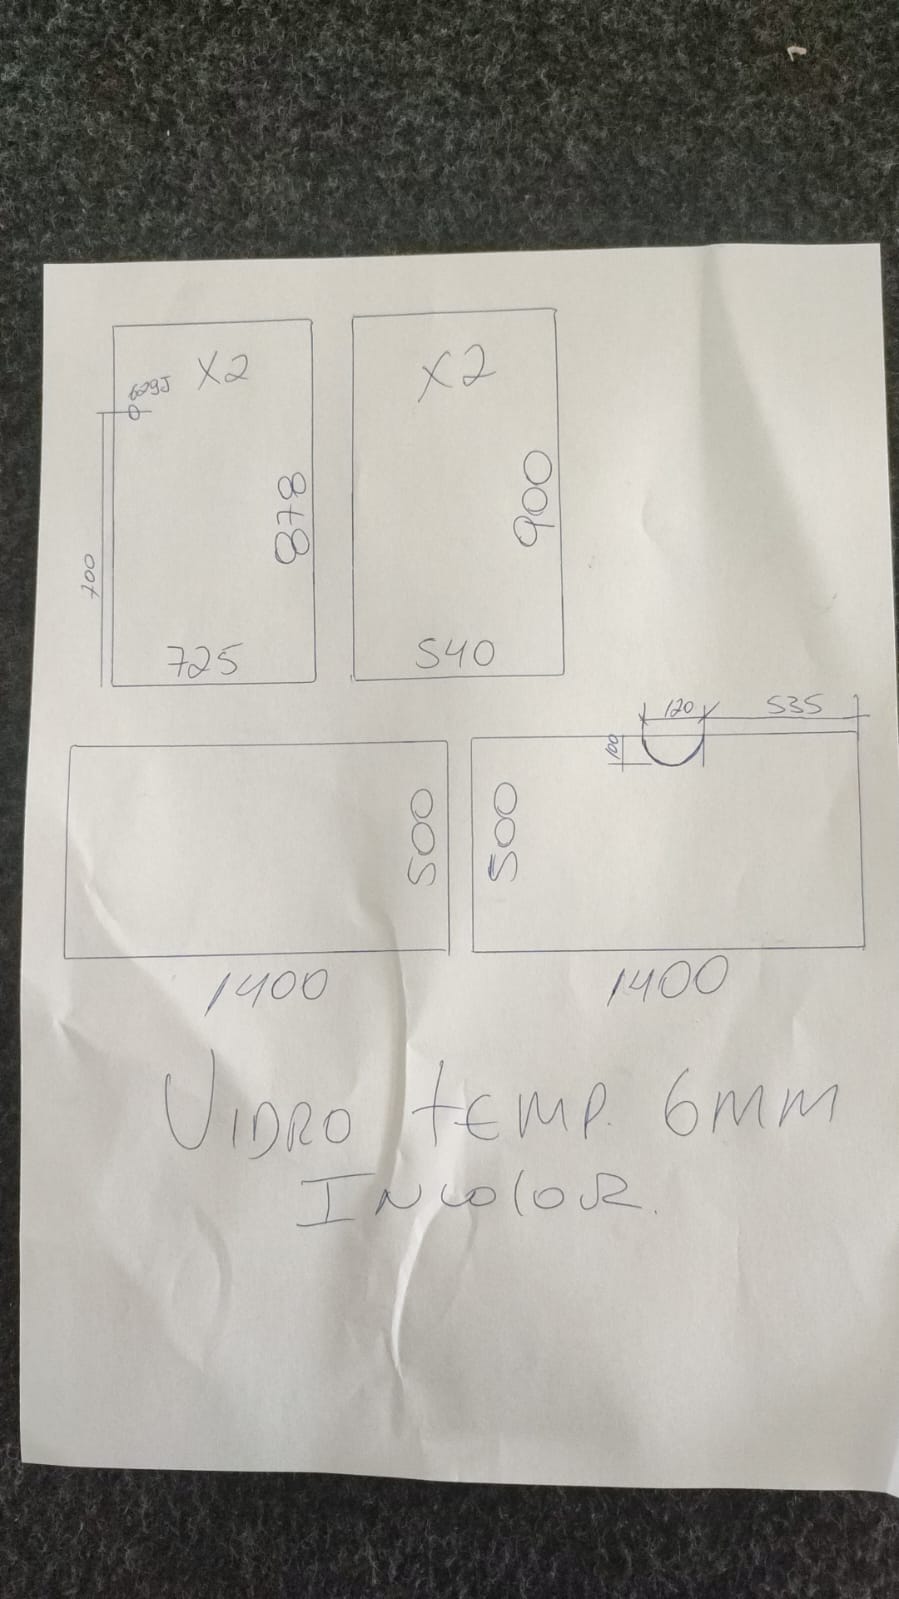 X2
X2
878
900
700
725
540
120
535
100
500
500
1400
1400
VIDRO TEMP. 6MM
INCOLOR.